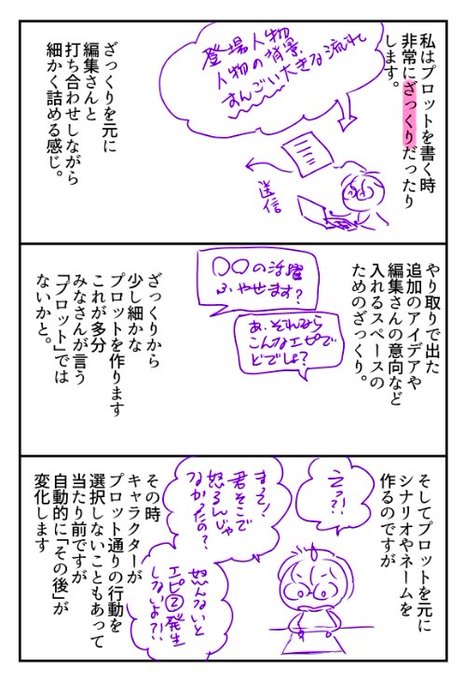 私はプロットを書く時
非常にざっくりだったり
します。
登場人物
人物の背景
すんごい大きな流れ
送信
ざっくりを元に
編集さんと
打ち合わせしながら
細かく詰める感じ。
やり取りで出た
追加のアイデアや
編集さんの意向など
入れるスペースの
ためのざっくり。
〇〇の活躍
ふやせます?
あ、それなら
こんなエピで
どでしょ?
ざっくりから
少し細かな
プロットを作ります
これが多分
みなさんが言う
「プロット」では
ないかと。
そしてプロットを元に
シナリオやネームを
作るのですが
えっ?!
まって!
君そこで
怒るんじゃ
なかったの?
怒んないと
エピ②発生
しないよ?!
その時
キャラクターが
プロット通りの行動を
選択しないこともあって
当たり前ですが
自動的に「その後」が
変化します